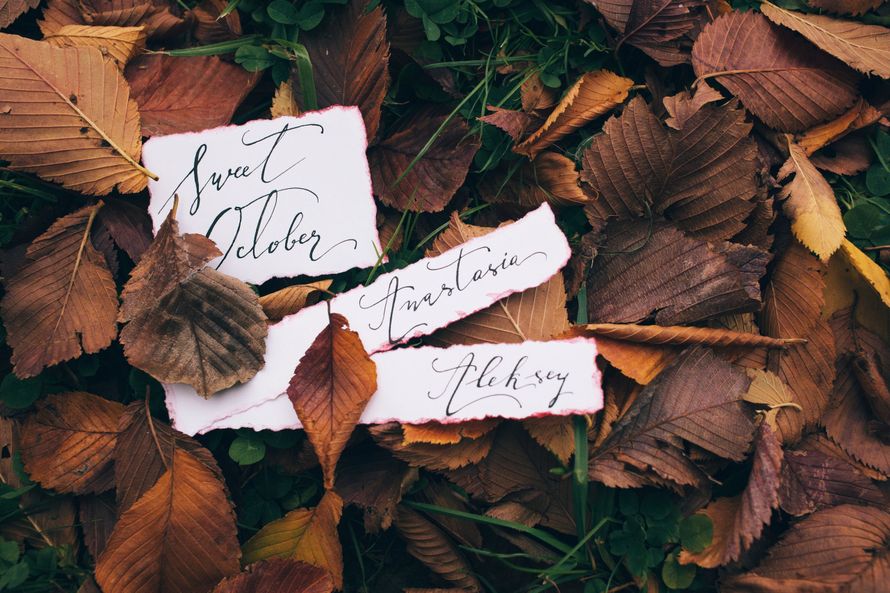 Sweet
October
Anastasia
Aleksey